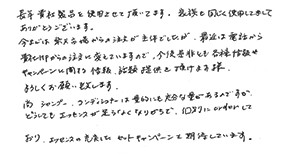 長年貴社製品を使用させて頂いてます。家族も同じく使用しまして
ありがとうございます。
今までは楽天市場からの注文が主体でしたが、最近は電話から
貴社HPからの注文に変えていますので、今後是非とも各種情報や
キャンペーンに関する情報、試験提供を頂けます様
よろしくお願い致します。
尚 シャンプー、コンディショナーは量的にも充分な量があるのですが
どうしてもエッセンスが足らなくなりがちで、10月にorderして
おり、エッセンスの充実したセットキャンペーンを期待しています。